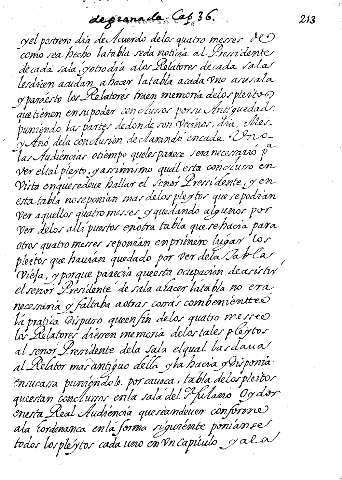 de granada. Cap. 36. 213
y el postrero dia de Acuerdo de los quatro messes de
como sea hecho la tabla se da noticia al Presidente
de cada sala, y otro dia a los Relatores de cada sala
les dicen acudan a hacer la tabla a cada uno a su sala
y para esto los Relatores traen memoria de los pleytos
que tienen en su poder conclussos por su Antiguedad.
puniendo las partes de donde son vecinos, dia, Mes,
y Año de la conclusion de Mandando en cada una
las Audiencias o tiempo que les parece sera necessario pa
ver el tal pleyto, y assimismo qual esta concluso en
Vista en que se deve hallar el señor Pressidente, y en
esta tabla no se ponian mas de los pleytos que se podrian
Ver aquellos quatro messes, y quedando algunos por
ver de los alli puestos en otra tabla que se hacia para
otros quatro messes se ponian en primero lugar los
pleytos que havian quedado por ver de la Tabla
Vieja, y porque parecia que esta ocupacion de asistir
el señor Presidente de sala a facer la tabla no era
necessaria y faltava a otras cosas combenientes
la pratica dispuso que en fin de los quatro messes
los Relatores diessen memoria de los tales pleytos
al señor Presidente de la sala el qual las dava
al Relator mas antiguo della, y la hacia y disponia
en su casa puniendo por caveca, tabla de los pleitos
que estan conclussos en la sala del Señor Oydor
en esta Real Audiencia que se an de ver conforme
a la hordenanca en la forma siguiente ponianse
todos los pleytos cada uno en un Capitulo, y a la